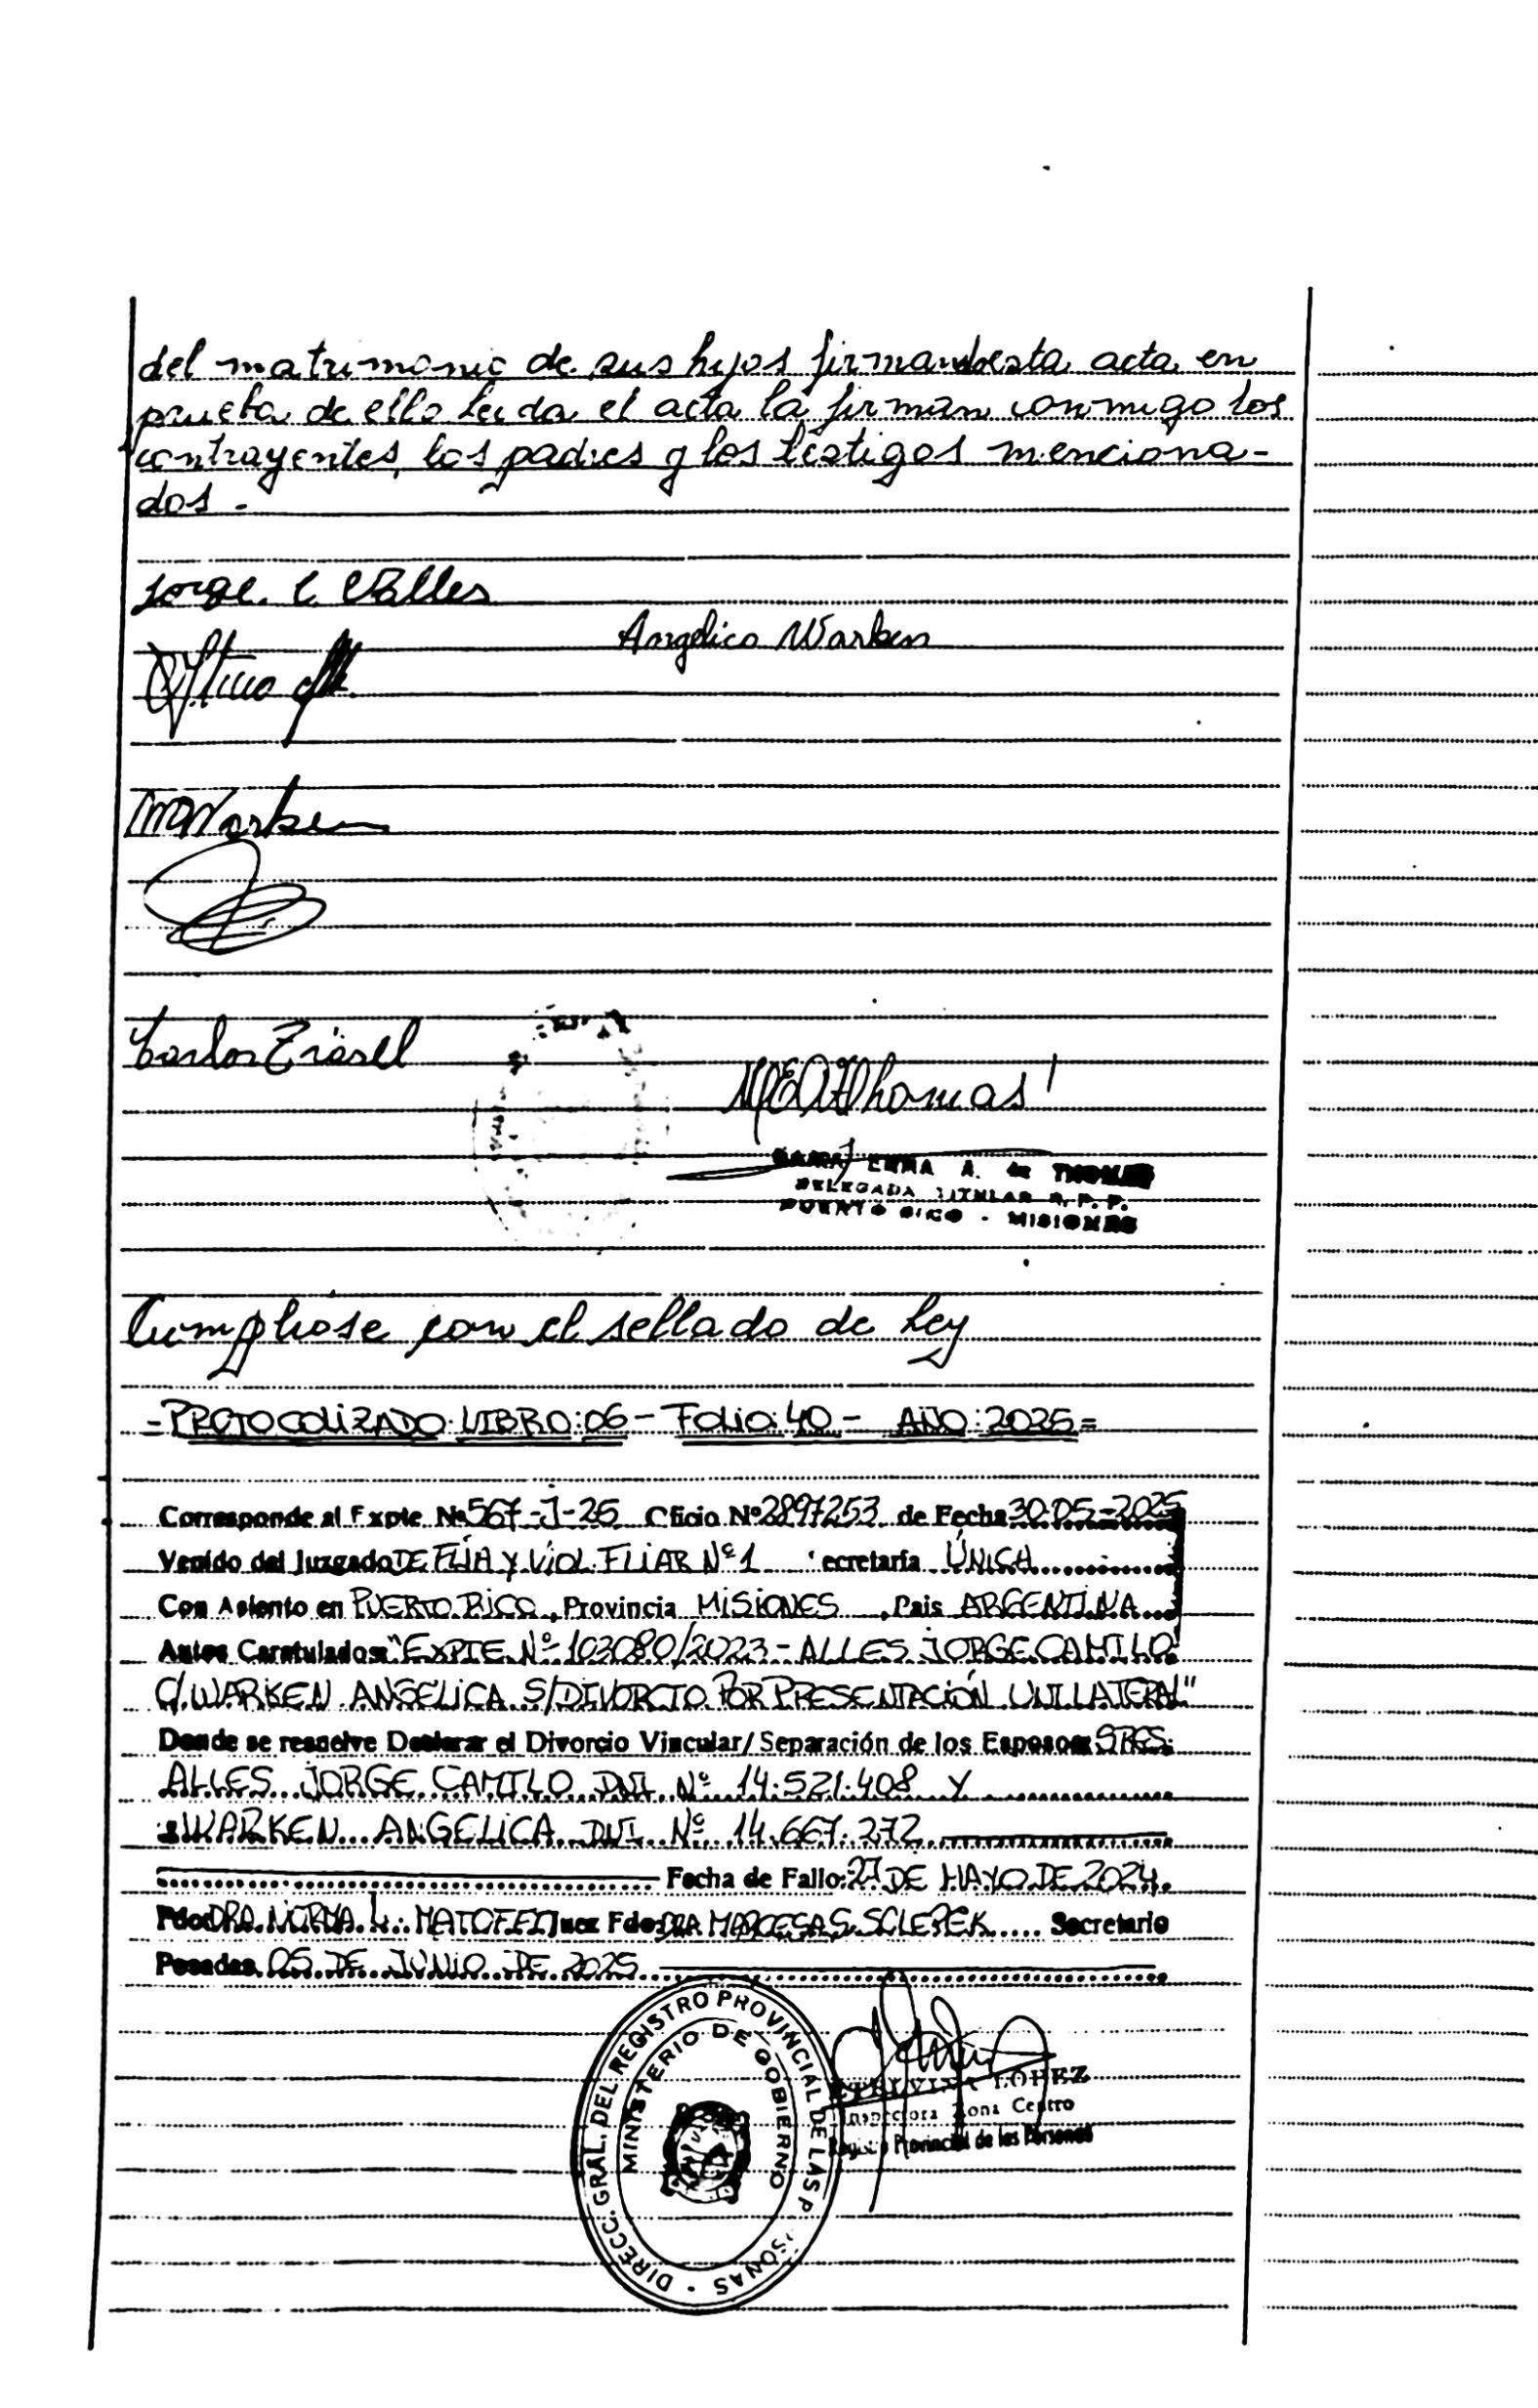 del matrimonio de sus hijos firmando esta acta en
prueba de ello leida el acta la firman conmigo los
contrayentes, los padres y los testigos menciona-
dos -
Jorge. C. Alles
Angelica Warken
MWarken
Carlos
Thomas
EMMA A. de THOMAS
DELEGADA TITULAR R. P. P.
PUERTO RICO - MISIONES
Cumpliose con el sellado de Ley
=PROTOCOLIZADO: LIBRO: 06 - FOLIO: 40 - AÑO: 2025=
Corresponde al Expte Nº 567-J-25 Oficio Nº 2897253 de Fecha 30-05-2025
Venido del Juzgado DE FLIA Y VIOL. FLIAR Nº 1 Secretaría ÚNICA
Con Asiento en PUERTO RICO, Provincia MISIONES, Pais ARGENTINA
Autos Caratulados: "EXPTE. Nº 103080/2023 - ALLES JORGE CAMILO
C/ WARKEN ANGELICA S/ DIVORCIO POR PRESENTACIÓN UNILATERAL"
Donde se resuelve Declarar el Divorcio Vincular/Separación de los Esposos: SRES.
ALLES JORGE CAMILO DNI Nº 14.521.408 Y
WARKEN ANGELICA DNI Nº 14.667.272
Fecha de Fallo: 27 DE MAYO DE 2024.
Fdo: DRA. NORMA L. Juez Fdo: DRA S. Secretario
Posadas 05 DE JUNIO DE 2025
DIRECC. GRAL. DEL REGISTRO PROVINCIAL DE LAS PERSONAS
MINISTERIO DE GOBIERNO
LOPEZ
Inspectora Zona Centro
Registro Provincial de las Personas